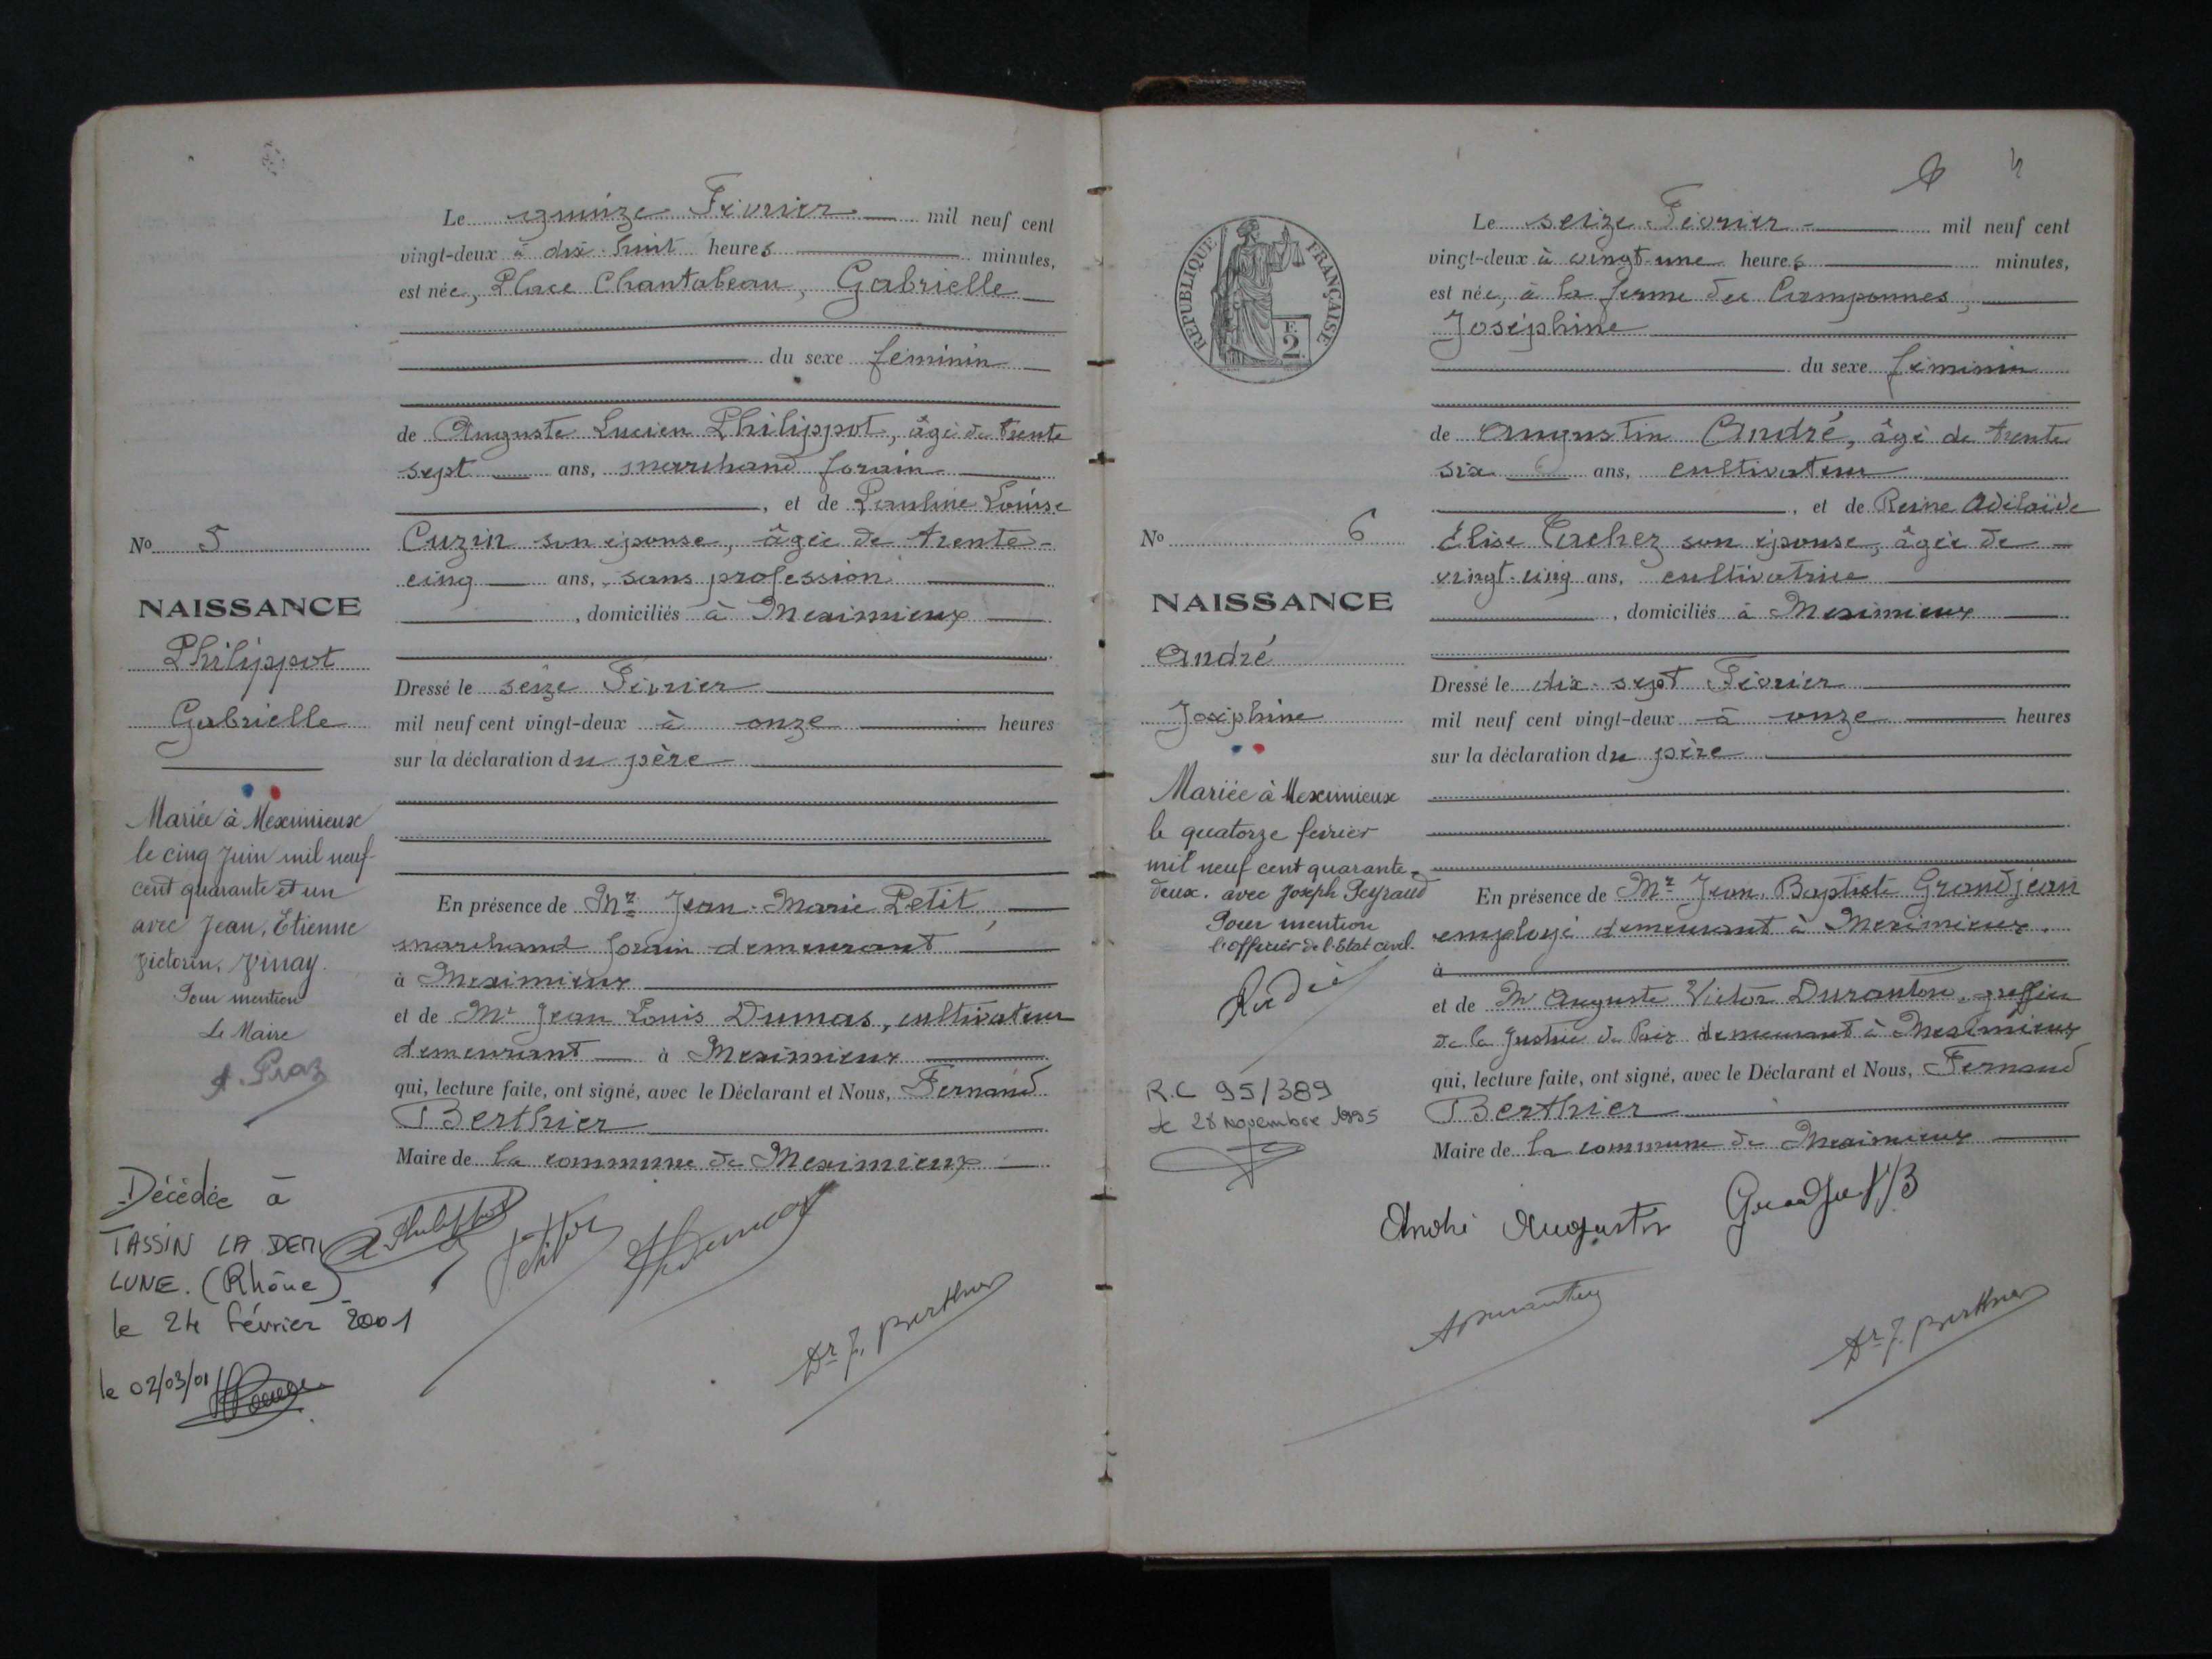 Le quinze Février mil neuf cent
vingt-deux à dix-huit heures minutes,
est née, Place Chantabeau, Gabrielle
du sexe féminin
de Auguste Lucien Philippot, âgé de trente
sept ans, marchand forain
, et de Pauline Louise
Cuzin son épouse, âgée de trente-
cinq ans, sans profession
, domiciliés à Meximieux
Dressé le seize Février
mil neuf cent vingt-deux à onze heures
sur la déclaration du père
En présence de Mr Jean-Marie Petit,
marchand forain demeurant
à Meximieux
et de Mr Jean Louis Dumas, cultivateur
demeurant à Meximieux
qui, lecture faite, ont signé, avec le Déclarant et Nous, Fernand
Berthier
Maire de la commune de Meximieux
Dr F. Berthier
No 5
NAISSANCE
Philippot
Gabrielle
Mariée à Meximieux
le cinq Juin mil neuf
cent quarante et un
avec Jean, Etienne
Victorin, Vinay.
Pour mention
Le Maire
Décédée à
TASSIN LA DEMI
LUNE. (Rhône)
le 24 février 2001
le 02/03/01
RÉPUBLIQUE FRANÇAISE
F.
2
Le seize Février mil neuf cent
vingt-deux à vingt-une heures minutes,
est née, à la ferme des
Joséphine
du sexe féminin
de Augustin André, âgé de trente
six ans, cultivateur
, et de Reine Adélaïde
Elise son épouse, âgée de
vingt-cinq ans, cultivatrice
, domiciliés à Meximieux
Dressé le dix-sept Février
mil neuf cent vingt-deux à onze heures
sur la déclaration du père
En présence de Mr Jean, Baptiste Grandjean
employé demeurant à Meximieux.
à
et de M Auguste Victor Duranton, greffier
de la Justice de Paix demeurant à Meximieux
qui, lecture faite, ont signé, avec le Déclarant et Nous, Fernand
Berthier
Maire de la commune de Meximieux
André Augustin
Dr F. Berthier
No 6
NAISSANCE
André
Joséphine
Mariée à Meximieux
le quatorze février
mil neuf cent quarante-
deux. avec Joseph Peyraud
Pour mention
l'officier de l'Etat civil.
R.C 95/389
le 28 novembre 1995